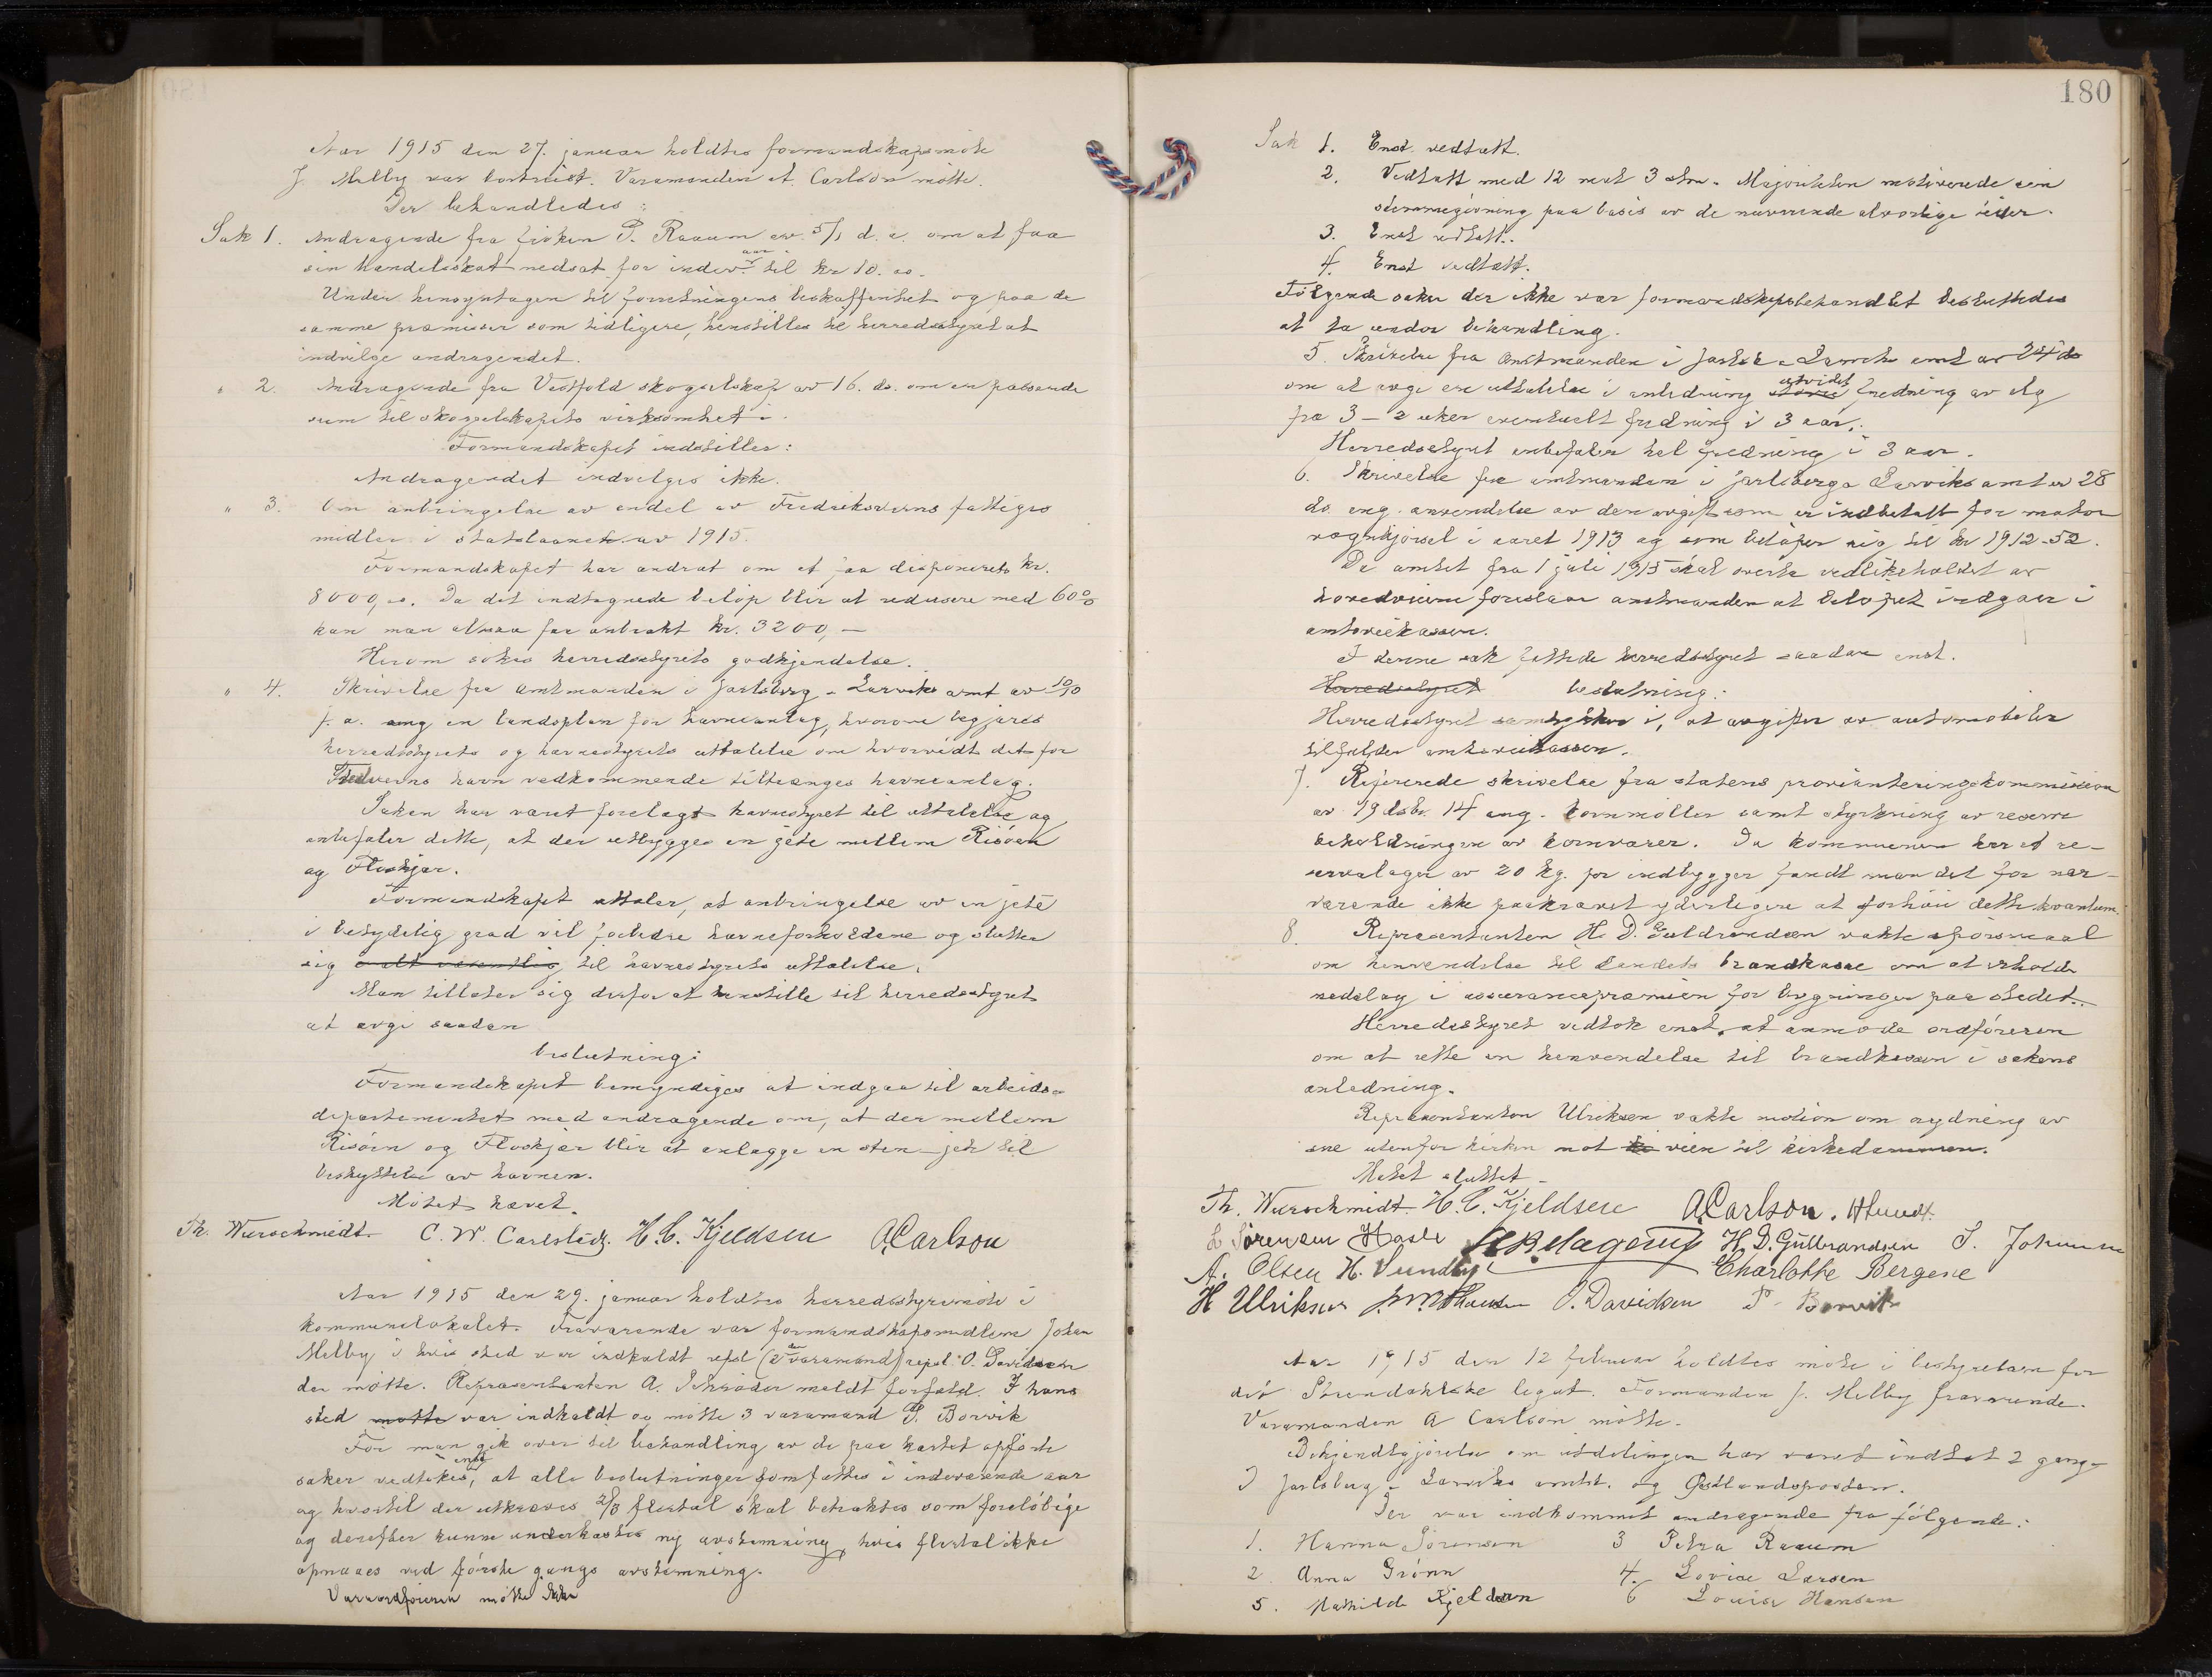 Aar 1915 den 27. januar holdtes formandskapsmöte
J. Melby var bortreist. Varamanden A. Carlson mötte.
Der behandledes:
Sak 1. Andragende fra fröken P. Raaum av 5/1 d.a. om at faa
sin handelsskat nedsat for indev. aar til kr 10.00.
Under hensyntagen til forretningens beskaffenhet og paa de
samme præmisser som tidligere, henstilles til herredsstyret at
indvilge andragendet.
" 2. Andragende fra Vestfold skogselskap av 16. ds. om en passende
sum til skogselskapets virksomhet i
Formandskapet indstiller:
Andragendet indvilges ikke.
" 3. Om anbringelse av endel av Fredriksværns fattiges
midler i statslaanet av 1915.
Formandskapet har andrat om at faa disponerets kr.
8000,00. Da det indtegnede belöp blir at redusere med 60%
kan man altsaa faa anbrakt kr. 3200,–
Herom sökes herredsstyrets godkjendelse.
" 4. Skrivelse fra amtmanden i Jarlsberg - Larviks amt av 10/10
f.a. ang en landsplan for havneanlæg, hvorom begjæres
herredsstyrets og havnestyrets uttalelse om hvorvidt det for
Stedværns havn vedkommende tiltrænges havneanlæg.
Saken har været forelagt havnestyret til uttalelse og
anbefaler dette, at der utbygges en jete mellem Risöen
og Floskjær.
Formandskapet uttaler, at anbringelse av en jeté
i betydelig grad vil forbedre havneforholdene og slutter
sig i alt væsentlig til havnestyrets uttalelse.
Man tillater sig derfor at henstille til herredsstyret
at avgi saadan
beslutning:
Formandskapet bemyndiges at indgaa til arbeids-
departementet med andragende om, at der mellem
Risöen og Floskjær blir at anlægge en sten-jete til
beskyttelse av havnen.
Mötet hævet.
Th. Wurschmidt. C. W. Carlstedt. H. C. Kjeldsen A Carlson
Aar 1915 den 29. januar holdtes herredsstyremöte i
kommunelokalet. Fraværende var formandskapsmedlem Johan
Melby i hvis sted var indkaldt repr. (2den varamand) repr. O. Davidsen
der mötte. Repræsentanten A. Schröder meldt forfald. I hans
sted motte var indkaldt og mötte 3 varamand P. Borvik
För man gik over til behandling av de paa kartet opförte
saker vedtokes enst., at alle beslutninger som fattes i indeværende aar
og hvortil der utkræves 2/3 flertal skal betraktes som forelöbige
og derefter kunne underkastes ny avstemning, hvis flertal ikke
opnaaes ved förste gangs avstemning.
Varaordföreren mötte ikke
180
Sak 1. Enst. vedtatt.
2. Vedtatt med 12 mot 3 stm. Majoriteten motiverede sin
stemmegivning paa basis av de nuværende alvorlige tider.
3. Enst vedtatt.
4. Enst vedtatt.
Fölgende saker der ikke var formandskapsbehandlet besluttedes
at ta under behandling.
5. Skrivelse fra amtmanden i Jarlsb. - Larviks amt av 24 ds
om at avgi en uttalelse i anledning större utvidet fredning av elg
fra 3 - 2 uker eventuelt fredning i 3 aar.
Herredsstyret anbefaler hel fredning i 3 aar.
6. Skrivelse fra amtmanden i Jarlsberg & Larviks amt av 28
ds. ang. anvendelse av den avgift som er indbetalt for motor
vognkjörsel i aaret 1913 og som belöper sig til kr 1912-52.
Da amtet fra 1 juli 1915 skal overta vedlikeholdet av
hovedveiene foreslaar amtmanden at belöpet indgaar i
amtsveikassen.
I denne sak fattede herredsstyret saadan enst.
Herredsstyret beslutning:
Herredsstyret samtykker i, at avgifter av automobiler
tilfalder amtsveikassen.
7. Refererede skrivelse fra statens provianteringskommission
av 19 dsbr. 14 ang. kornmöller samt styrkning av reserve
beholdningen av kornvarer. Da kommunen har et re-
servelager av 20 kg. pr indbygger fandt man det for nær-
værende ikke paakrævet yderligere at forhöie dette kvantum.
8. Repræsentanten H. D. Gulbrandsen vakte spörsmaal
om henvendelse til Landets brandkasse om at erholde
nedslag i assurancepræmien for bygninger paa stedet.
Herredsstyret vedtok enst. at anmode ordföreren
om at rette en henvendelse til brandkassen i sakens
anledning.
Repræsentanten Ulriksen vakte motion om rydning av
sne utenfor kirken mot ki veien til kirkedammen.
Mötet sluttet -
Th. Wurschmidt. H. C. Kjeldsen A Carlson. H Lund.
L Sörensen Hasle H. D. Gulbrandsen S. Johnsen
A. Olsen H. Sundby. Charlotte Bergene
H Ulriksen O. Davidsen P. Borvik
Aar 1915 den 12 februar holdtes möte i bestyrelsen for
det legat. Formanden J. Melby fraværende.
Varamanden A Carlson mötte.
Bekjendtgjörelse om utdelingen har været indtat 2 gange
I Jarlsberg - Larviks amtst. og Östlandsposten.
Der var indkommet andragende fra fölgende:
1. Hanna Sörensen 3 Petra Raaum
2. Anna Grönn 4. Lovise Larsen
5. Mathilde Kjeldsen 6 Louise Hansen